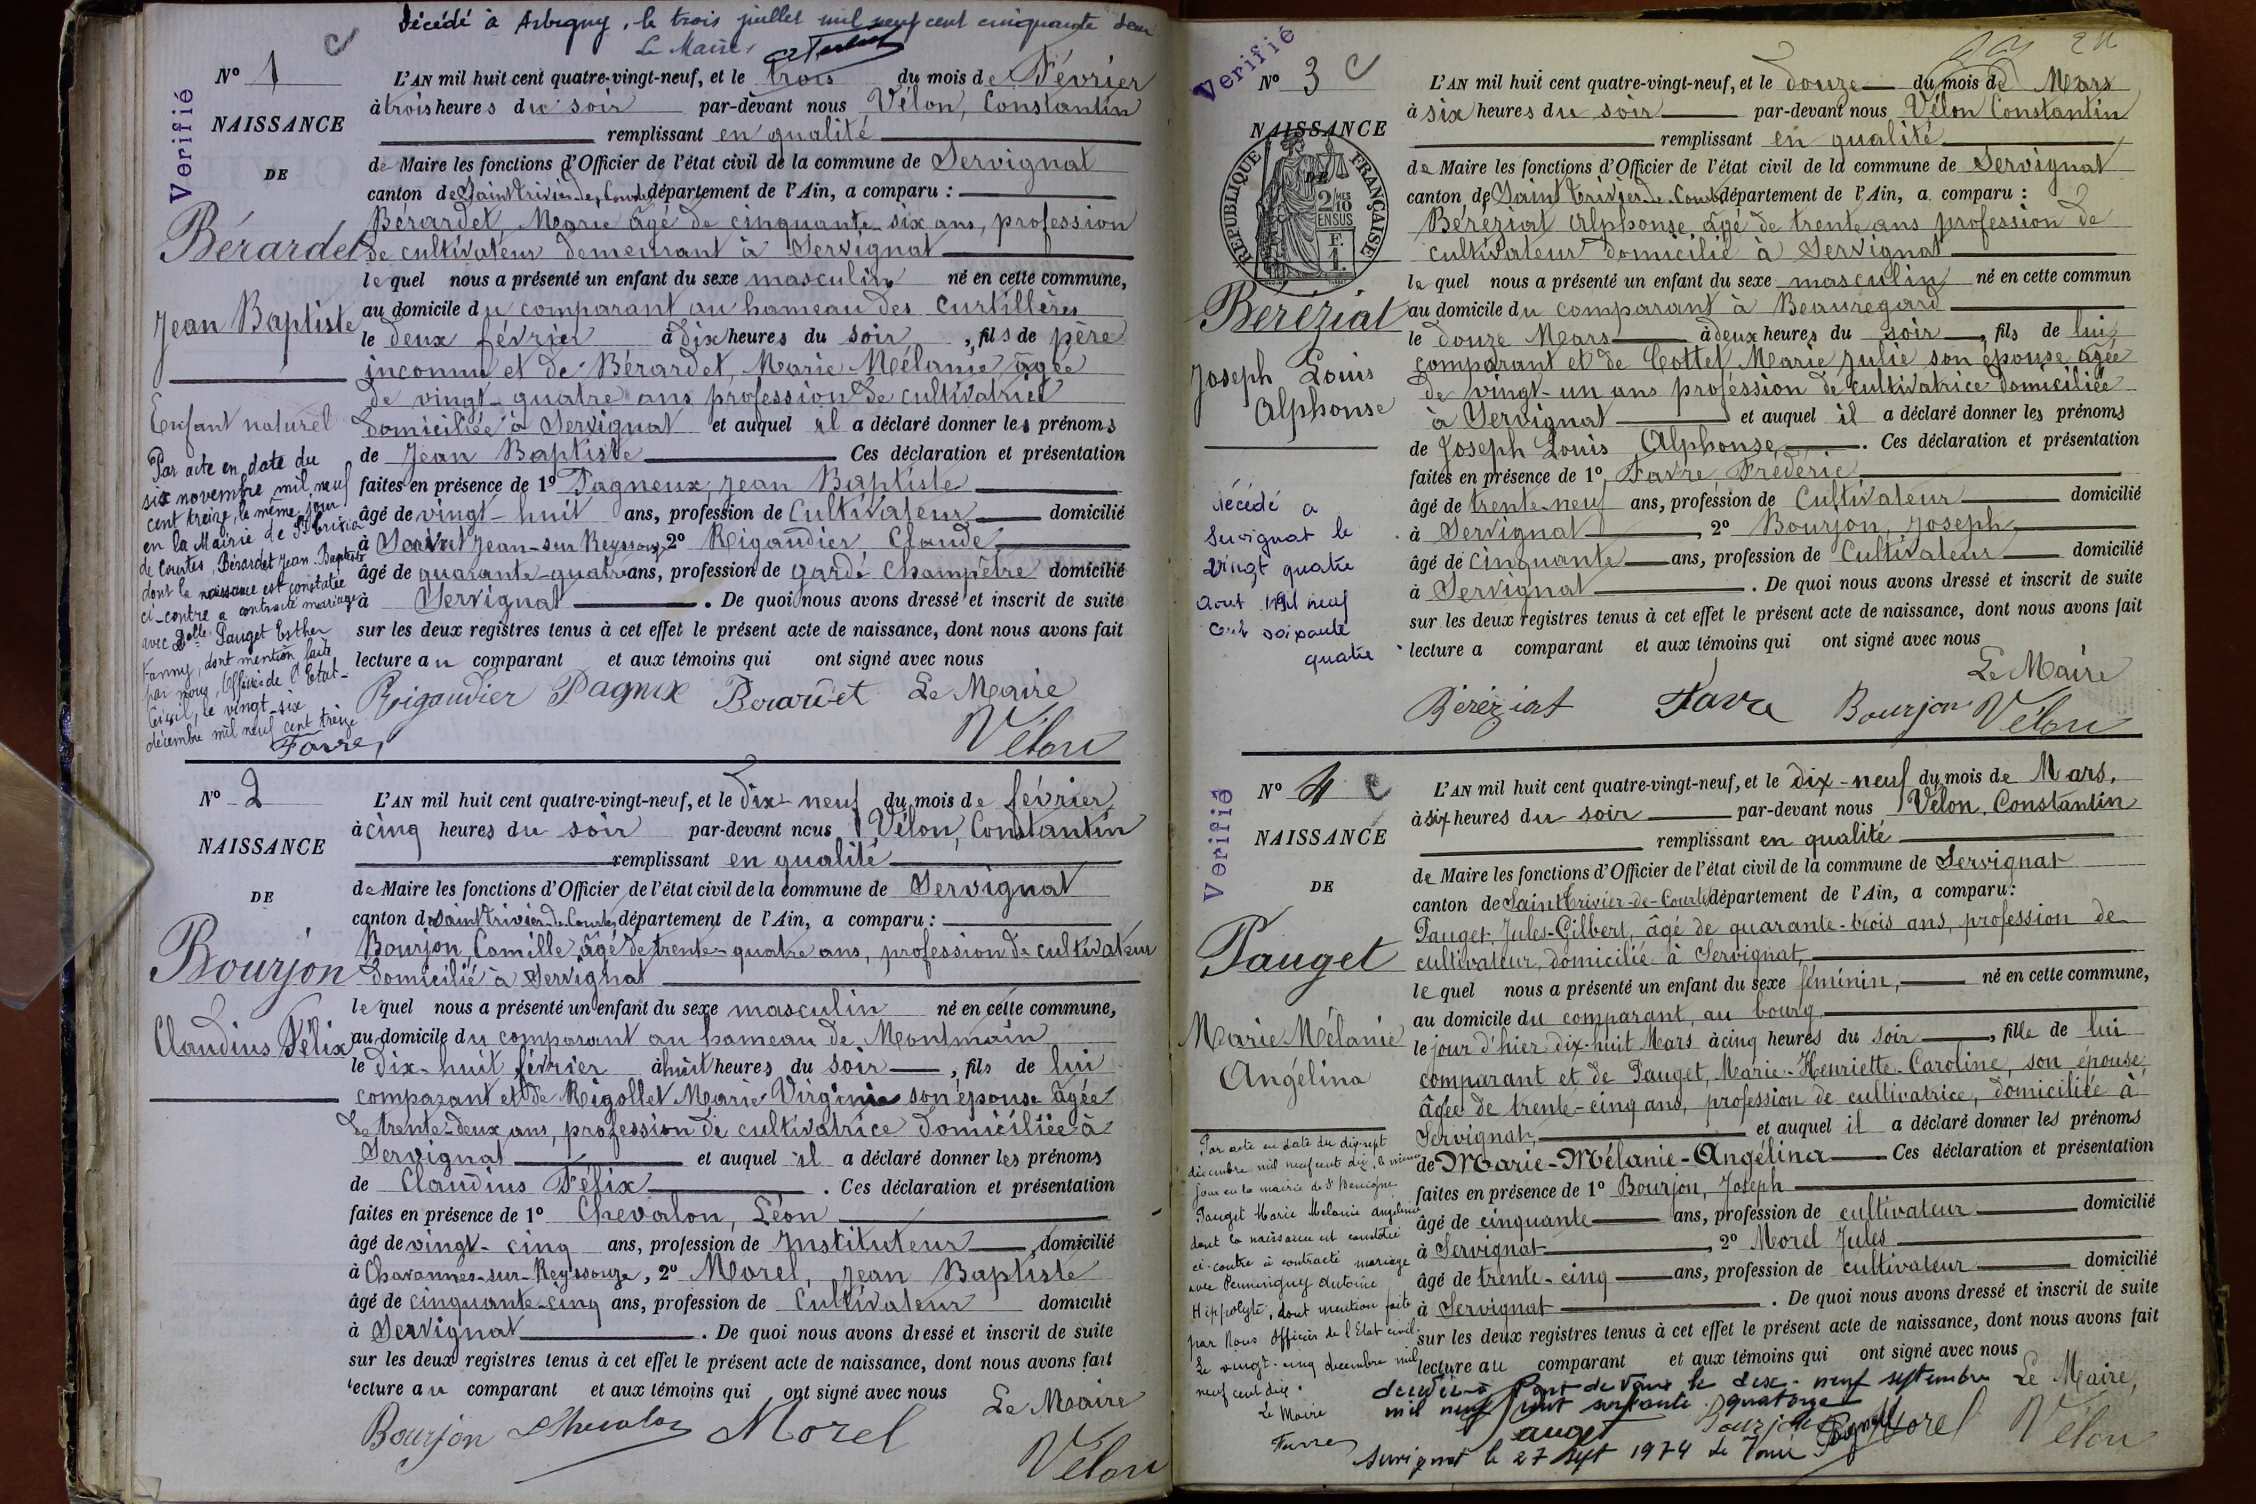 Décédé à Arbigny, le trois juillet mil neuf cent cinquante deux
Le Maire,
Verifié
N° 1
NAISSANCE
DE
Bérardet
Jean Baptiste
Enfant naturel
Par acte en date du
six novembre mil neuf
cent treize, le même jour
en la Mairie de St Trivier
de Courtes, Bérardet Jean-Baptiste
dont la naissance est constatée
ci-contre a contracté mariage
avec Delle Pauget Esther
Fanny, dont mention faite
par nous, Officier de l'Etat-
Civil, le vingt-six
décembre mil neuf cent treize
Favre
L'AN mil huit cent quatre-vingt-neuf, et le trois du mois de Février
à trois heures du soir par-devant nous Vélon, Constantin
remplissant en qualité
de Maire les fonctions d'Officier de l'état civil de la commune de Servignat
canton de Saint Trivier-de-Courtes département de l'Ain, a comparu :
Bérardet, Marie âgé de cinquante-six ans, profession
de cultivateur demeurant à Servignat
lequel nous a présenté un enfant du sexe masculin né en cette commune,
au domicile du comparant au hameau des Curtillères
le deux février à dix heures du soir, fils de père
inconnu et de Bérardet, Marie Mélanie âgée
de vingt-quatre ans profession de cultivatrice
domiciliée à Servignat et auquel il a déclaré donner les prénoms
de Jean Baptiste Ces déclaration et présentation
faites en présence de 1° Pagneux, Jean Baptiste
âgé de vingt-huit ans, profession de Cultivateur domicilié
à Saint Jean-sur-Reyssouze, 2° Rigaudier Claude
âgé de quarante-quatre ans, profession de garde champêtre domicilié
à Servignat. De quoi nous avons dressé et inscrit de suite
sur les deux registres tenus à cet effet le présent acte de naissance, dont nous avons fait
lecture au comparant et aux témoins qui ont signé avec nous
Rigaudier Pagneux Berardet Le Maire
Vélon
N° 2
NAISSANCE
DE
Bourjon
Claudius Félix
L'AN mil huit cent quatre-vingt-neuf, et le dix-neuf du mois de février
à cinq heures du soir par-devant nous Vélon, Constantin
remplissant en qualité
de Maire les fonctions d'Officier de l'état civil de la commune de Servignat
canton de Saint Trivier-de-Courtes département de l'Ain, a comparu :
Bourjon, Camille, âgé de trente-quatre ans, profession de cultivateur
domicilié à Servignat
lequel nous a présenté un enfant du sexe masculin né en cette commune,
au domicile du comparant au hameau de Montmain
le dix-huit février à huit heures du soir, fils de lui
comparant et de Rigollet Marie Virginie son épouse âgée
de trente-deux ans, profession de cultivatrice domiciliée à
Servignat et auquel il a déclaré donner les prénoms
de Claudius Félix. Ces déclaration et présentation
faites en présence de 1° Chevalon, Léon
âgé de vingt-cinq ans, profession de Instituteur, domicilié
à Chavannes-sur-Reyssouze, 2° Morel, Jean Baptiste
âgé de cinquante-cinq ans, profession de Cultivateur domicilié
à Servignat. De quoi nous avons dressé et inscrit de suite
sur les deux registres tenus à cet effet le présent acte de naissance, dont nous avons fait
lecture au comparant et aux témoins qui ont signé avec nous
Le Maire
Bourjon Chevalon Morel
Vélon
Verifié
N° 3
NAISSANCE
DE
REPUBLIQUE FRANÇAISE
2/10 MES
EN SUS
F. 1.
Béréziat
Joseph Louis
Alphonse
Décédé a
Servignat le
vingt quatre
Aout Mil neuf
cent soixante
quatre
L'AN mil huit cent quatre-vingt-neuf, et le douze du mois de Mars
à six heures du soir par-devant nous Vélon Constantin
remplissant en qualité
de Maire les fonctions d'Officier de l'état civil de la commune de Servignat
canton de Saint Trivier-de-Courtes département de l'Ain, a comparu :
Béréziat Alphonse âgé de trente ans profession de
cultivateur domicilié à Servignat
lequel nous a présenté un enfant du sexe masculin né en cette commun
au domicile du comparant à Beauregard
le douze Mars à deux heures du soir, fils de lui
comparant et de Cottet Marie Julie son épouse âgée
de vingt-un ans profession de cultivatrice domiciliée
à Servignat et auquel il a déclaré donner les prénoms
de Joseph Louis Alphonse. Ces déclaration et présentation
faites en présence de 1° Favre Frédéric
âgé de trente-neuf ans, profession de Cultivateur domicilié
à Servignat, 2° Bourjon, Joseph
âgé de Cinquante ans, profession de Cultivateur domicilié
à Servignat. De quoi nous avons dressé et inscrit de suite
sur les deux registres tenus à cet effet le présent acte de naissance, dont nous avons fait
lecture a comparant et aux témoins qui ont signé avec nous
Le Maire
Béréziat Favre Bourjon Vélon
Verifié
N° 4
NAISSANCE
DE
Pauget
Marie Mélanie
Angélina
Par acte en date du dix-sept
décembre mil neuf cent dix, le même
jour en la mairie de St Bénigne
Pauget Marie Mélanie Angelina
dont la naissance est constatée
ci-contre a contracté mariage
avec Antoine
Hippolyte, dont mention faite
par Nous Officier de l'Etat civil
Le vingt-cinq decembre mil
neuf cent dix.
Le Maire
Favre
L'AN mil huit cent quatre-vingt-neuf, et le dix-neuf du mois de Mars.
à six heures du soir par-devant nous Vélon, Constantin
remplissant en qualité
de Maire les fonctions d'Officier de l'état civil de la commune de Servignat
canton de Saint Trivier-de-Courtes département de l'Ain, a comparu :
Pauget, Jules-Gilbert, âgé de quarante-trois ans, profession de
cultivateur, domicilié à Servignat,
lequel nous a présenté un enfant du sexe féminin, né en cette commune,
au domicile du comparant, au bourg,
le jour d'hier dix-huit Mars à cinq heures du soir, fille de lui
comparant et de Pauget, Marie-Henriette-Caroline, son épouse,
âgée de trente-cinq ans, profession de cultivatrice, domiciliée à
Servignat, et auquel il a déclaré donner les prénoms
de Marie-Mélanie-Angélina Ces déclaration et présentation
faites en présence de 1° Bourjon, Joseph
âgé de cinquante ans, profession de cultivateur domicilié
à Servignat, 2° Morel Jules
âgé de trente-cinq ans, profession de cultivateur domicilié
à Servignat. De quoi nous avons dressé et inscrit de suite
sur les deux registres tenus à cet effet le présent acte de naissance, dont nous avons fait
lecture au comparant et aux témoins qui ont signé avec nous
décédée à Pont de Vaux le dix-neuf septembre Le Maire,
mil neuf cent soixante quatorze
Pauget Bourjon Morel Vélon
Servignat le 27 sept 1974 Le Maire